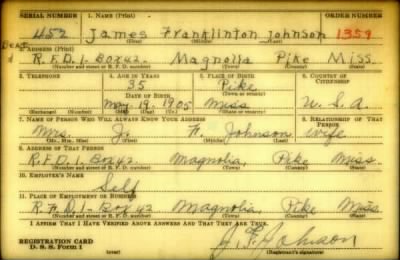 SERIAL NUMBER 1. NAME (Print) ORDER NUMBER
452 James Franklinton Johnson 1359
(First) (Middle) (Last)
DEAD
2. ADDRESS (Print)
R.F.D.1-Box 42 Magnolia Pike Miss.
(Number and street or R. F. D. number) (Town) (County) (State)
3. TELEPHONE 4. AGE IN YEARS 5. PLACE OF BIRTH 6. COUNTRY OF CITIZENSHIP
35 Pike
DATE OF BIRTH (Town or county)
May 19. 1905 Miss U.S.A.
(Exchange) (No.) (Mo.) (Day) (Yr.) (State or country)
7. NAME OF PERSON WHO WILL ALWAYS KNOW YOUR ADDRESS 8. RELATIONSHIP OF THAT PERSON
Mrs. J. F. Johnson wife
(Mr., Mrs., Miss) (First) (Middle) (Last)
9. ADDRESS OF THAT PERSON
R.F.D.1-Box 42. Magnolia, Pike Miss
(Number and street or R. F. D. number) (Town) (County) (State)
10. EMPLOYER'S NAME
Self
11. PLACE OF EMPLOYMENT OR BUSINESS
R.F.D.1-Box 42 Magnolia, Pike Miss
(Number and street or R. F. D. number) (Town) (County) (State)
I AFFIRM THAT I HAVE VERIFIED ABOVE ANSWERS AND THAT THEY ARE TRUE.
REGISTRATION CARD J. F. Johnson
D. S. S. Form 1 (Registrant's signature)